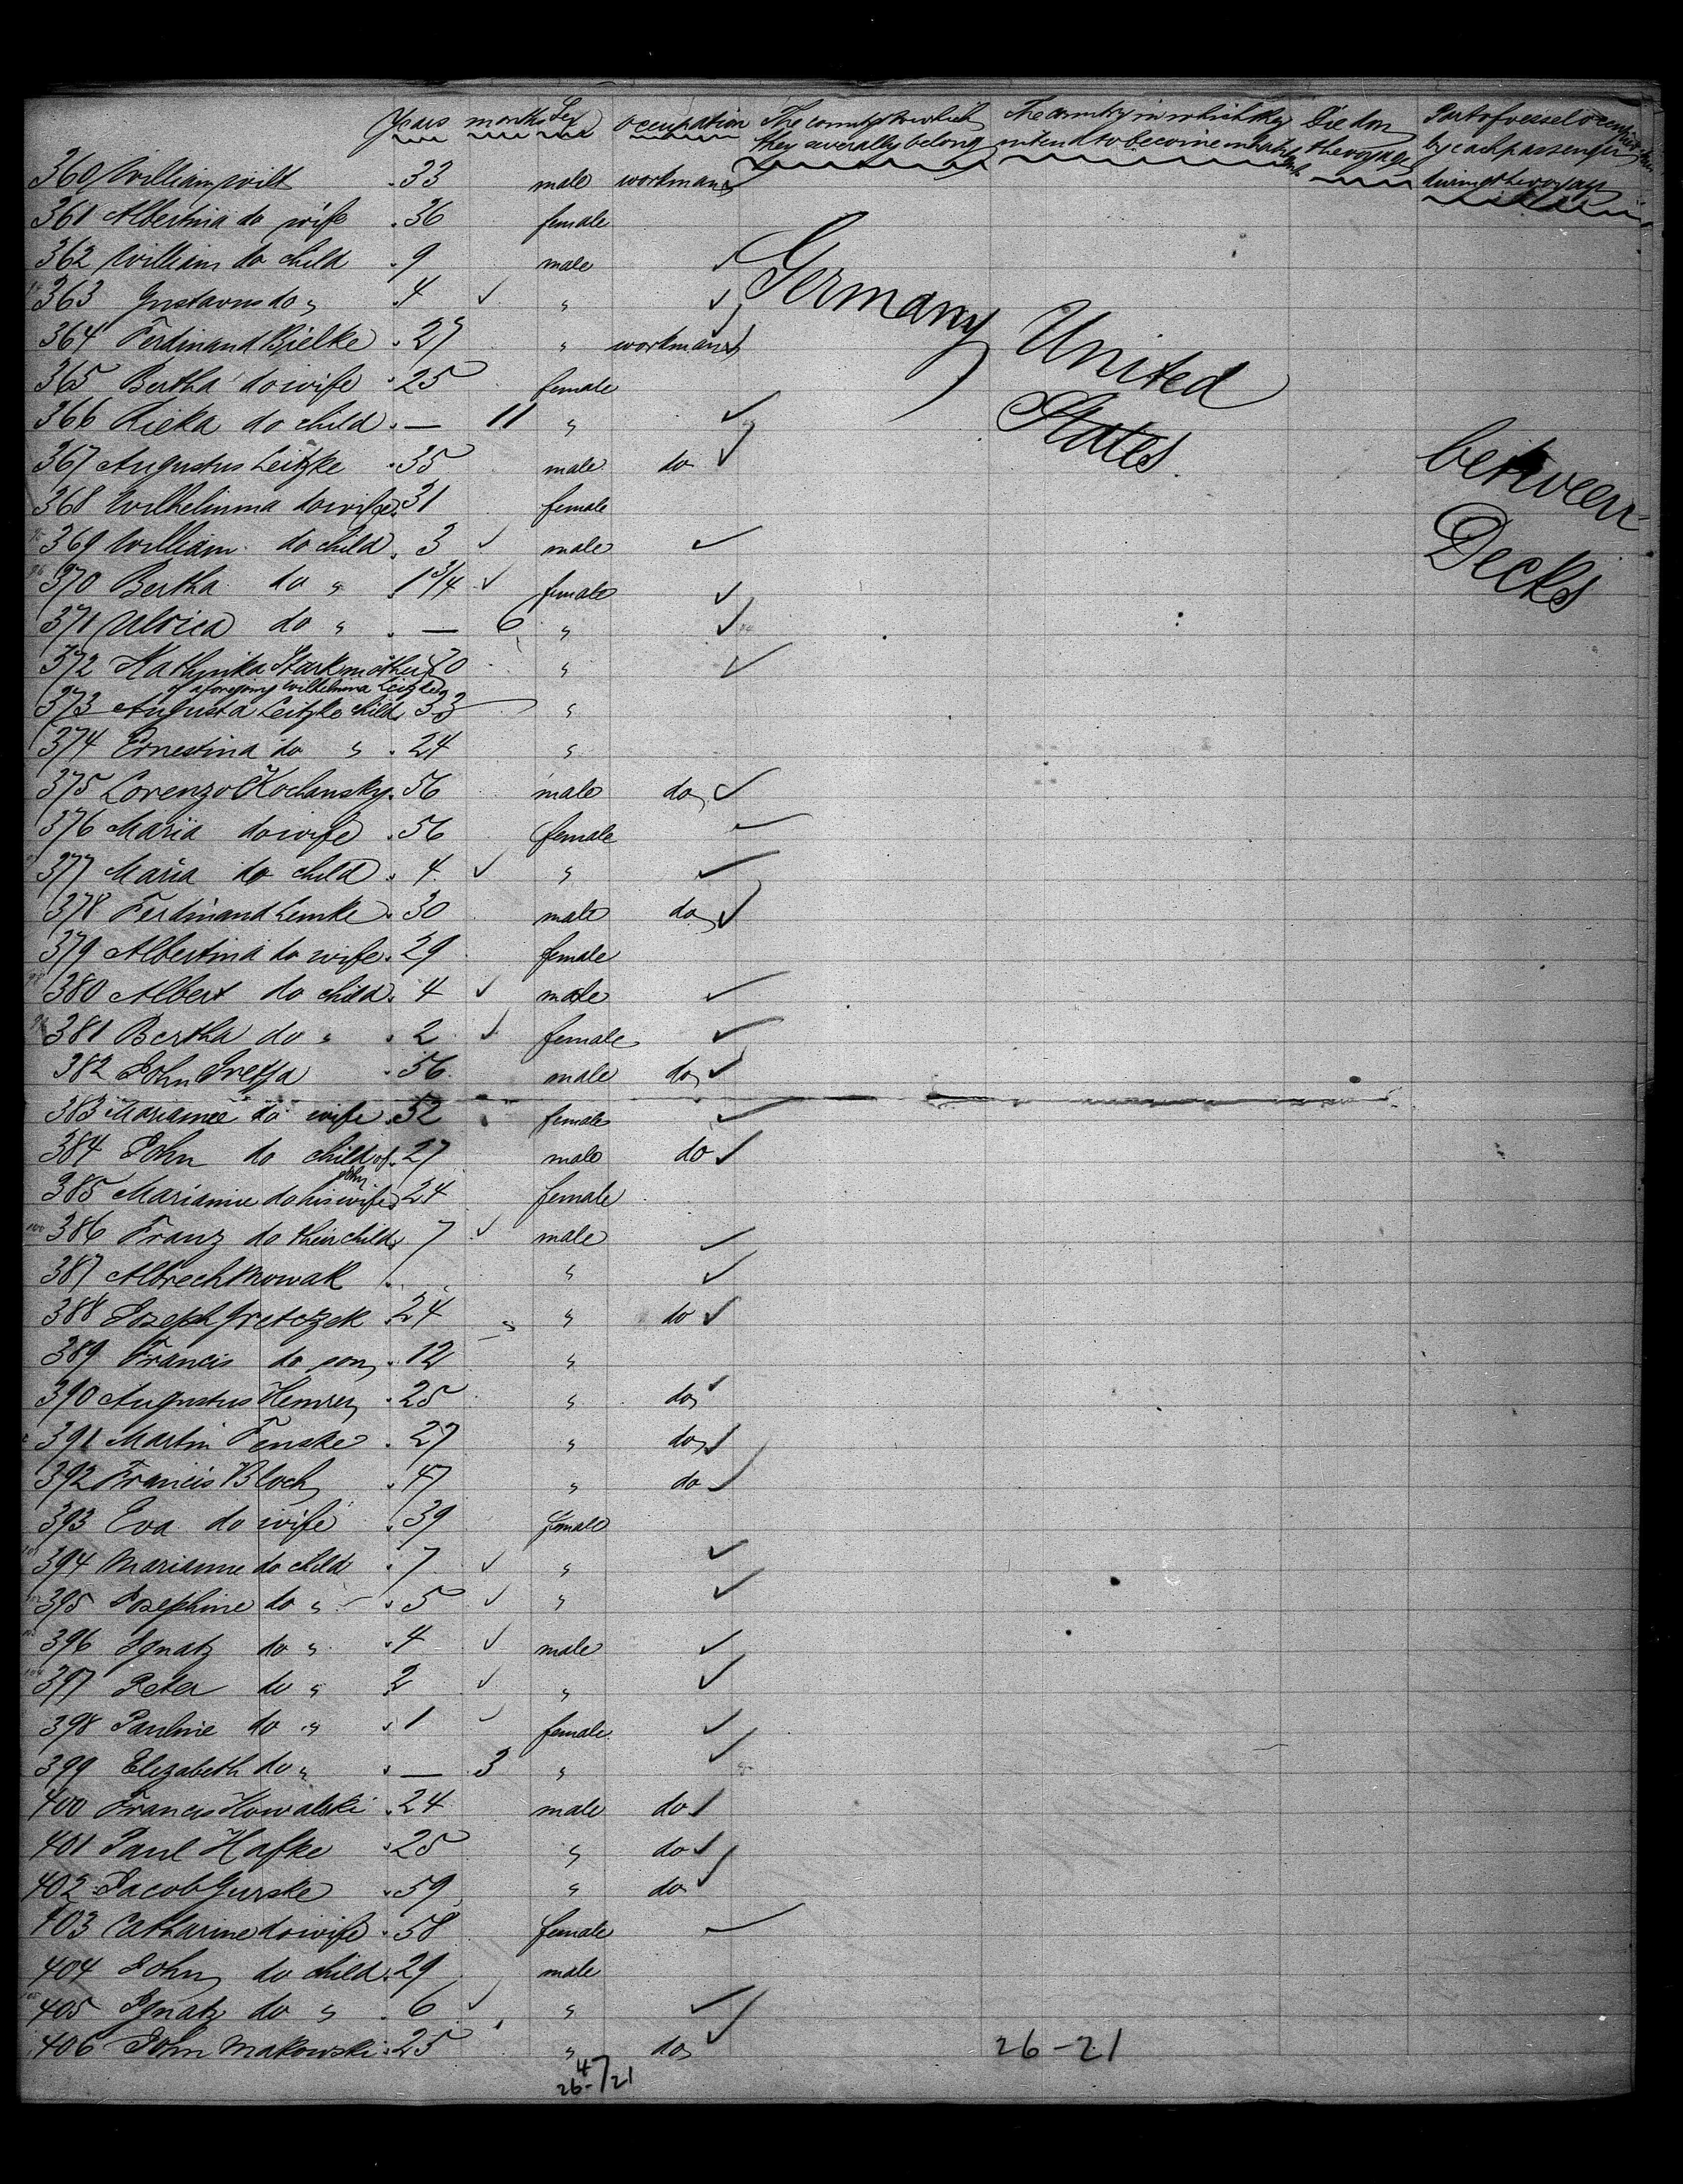 Years months Sex occupation The country to which The country in which they Died on Part of vessel occupied
they severally belong intend to become inhabitants the voyage by each passenger
during the voyage
360 William Wilt 33 male workman
361 Albertina do wife 36 female
362 William do child 9 male
363 Gustavus do " 4 "
Germany
364 Ferdinand Bielke 27 " workman
United
365 Bertha do wife 25 female
366 Rieka do child — 11 "
States
367 Augustus Leitzke 35 male do
between
368 Wilhelmina do wife 31 female
369 William do child 3 male
Decks
370 Bertha do " 1 3/4 female
371 Ulrica do " — 6 "
372 Stark mother "
of aforegoing Wilhelmina Leitzke
373 Augusta Leitzke child 33 "
374 Ernestina do " 24 "
375 Lorenzo Kochansky 56 male do
376 Maria do wife 56 female
377 Maria do child 4 "
378 Ferdinand Lemke 30 male do
379 Albertina do wife 29 female
380 Albert do child 4 male
381 Bertha do " 2 female
382 John 56 male do
383 Marianne do wife 52 female
384 John do child of 27 male do
John
385 Marianne do his wife 24 female
386 Franz do their child 7 male
387 Albrecht Nowak "
388 Joseph 24 " do
389 Francis do son 12 "
390 Augustus 25 " do
391 Martin Fenske 27 " do
392 Francis Bloch 47 " do
393 Eva do wife 39 female
394 Marianne do child 7 "
395 Josephine do " 5 "
396 Ignatz do " 4 male
397 Peter do " 2 "
398 Pauline do " 1 female
399 Elizabeth do " — 3 "
400 Francis Kowalski 24 male do
401 Paul Hafke 25 " do
402 Jacob Gurske 59 " do
403 Catharine do wife 58 female
404 John do child 29 male
405 Ignatz do " 6 "
406 John Makowski 25 " do
26-21
47
26-/21